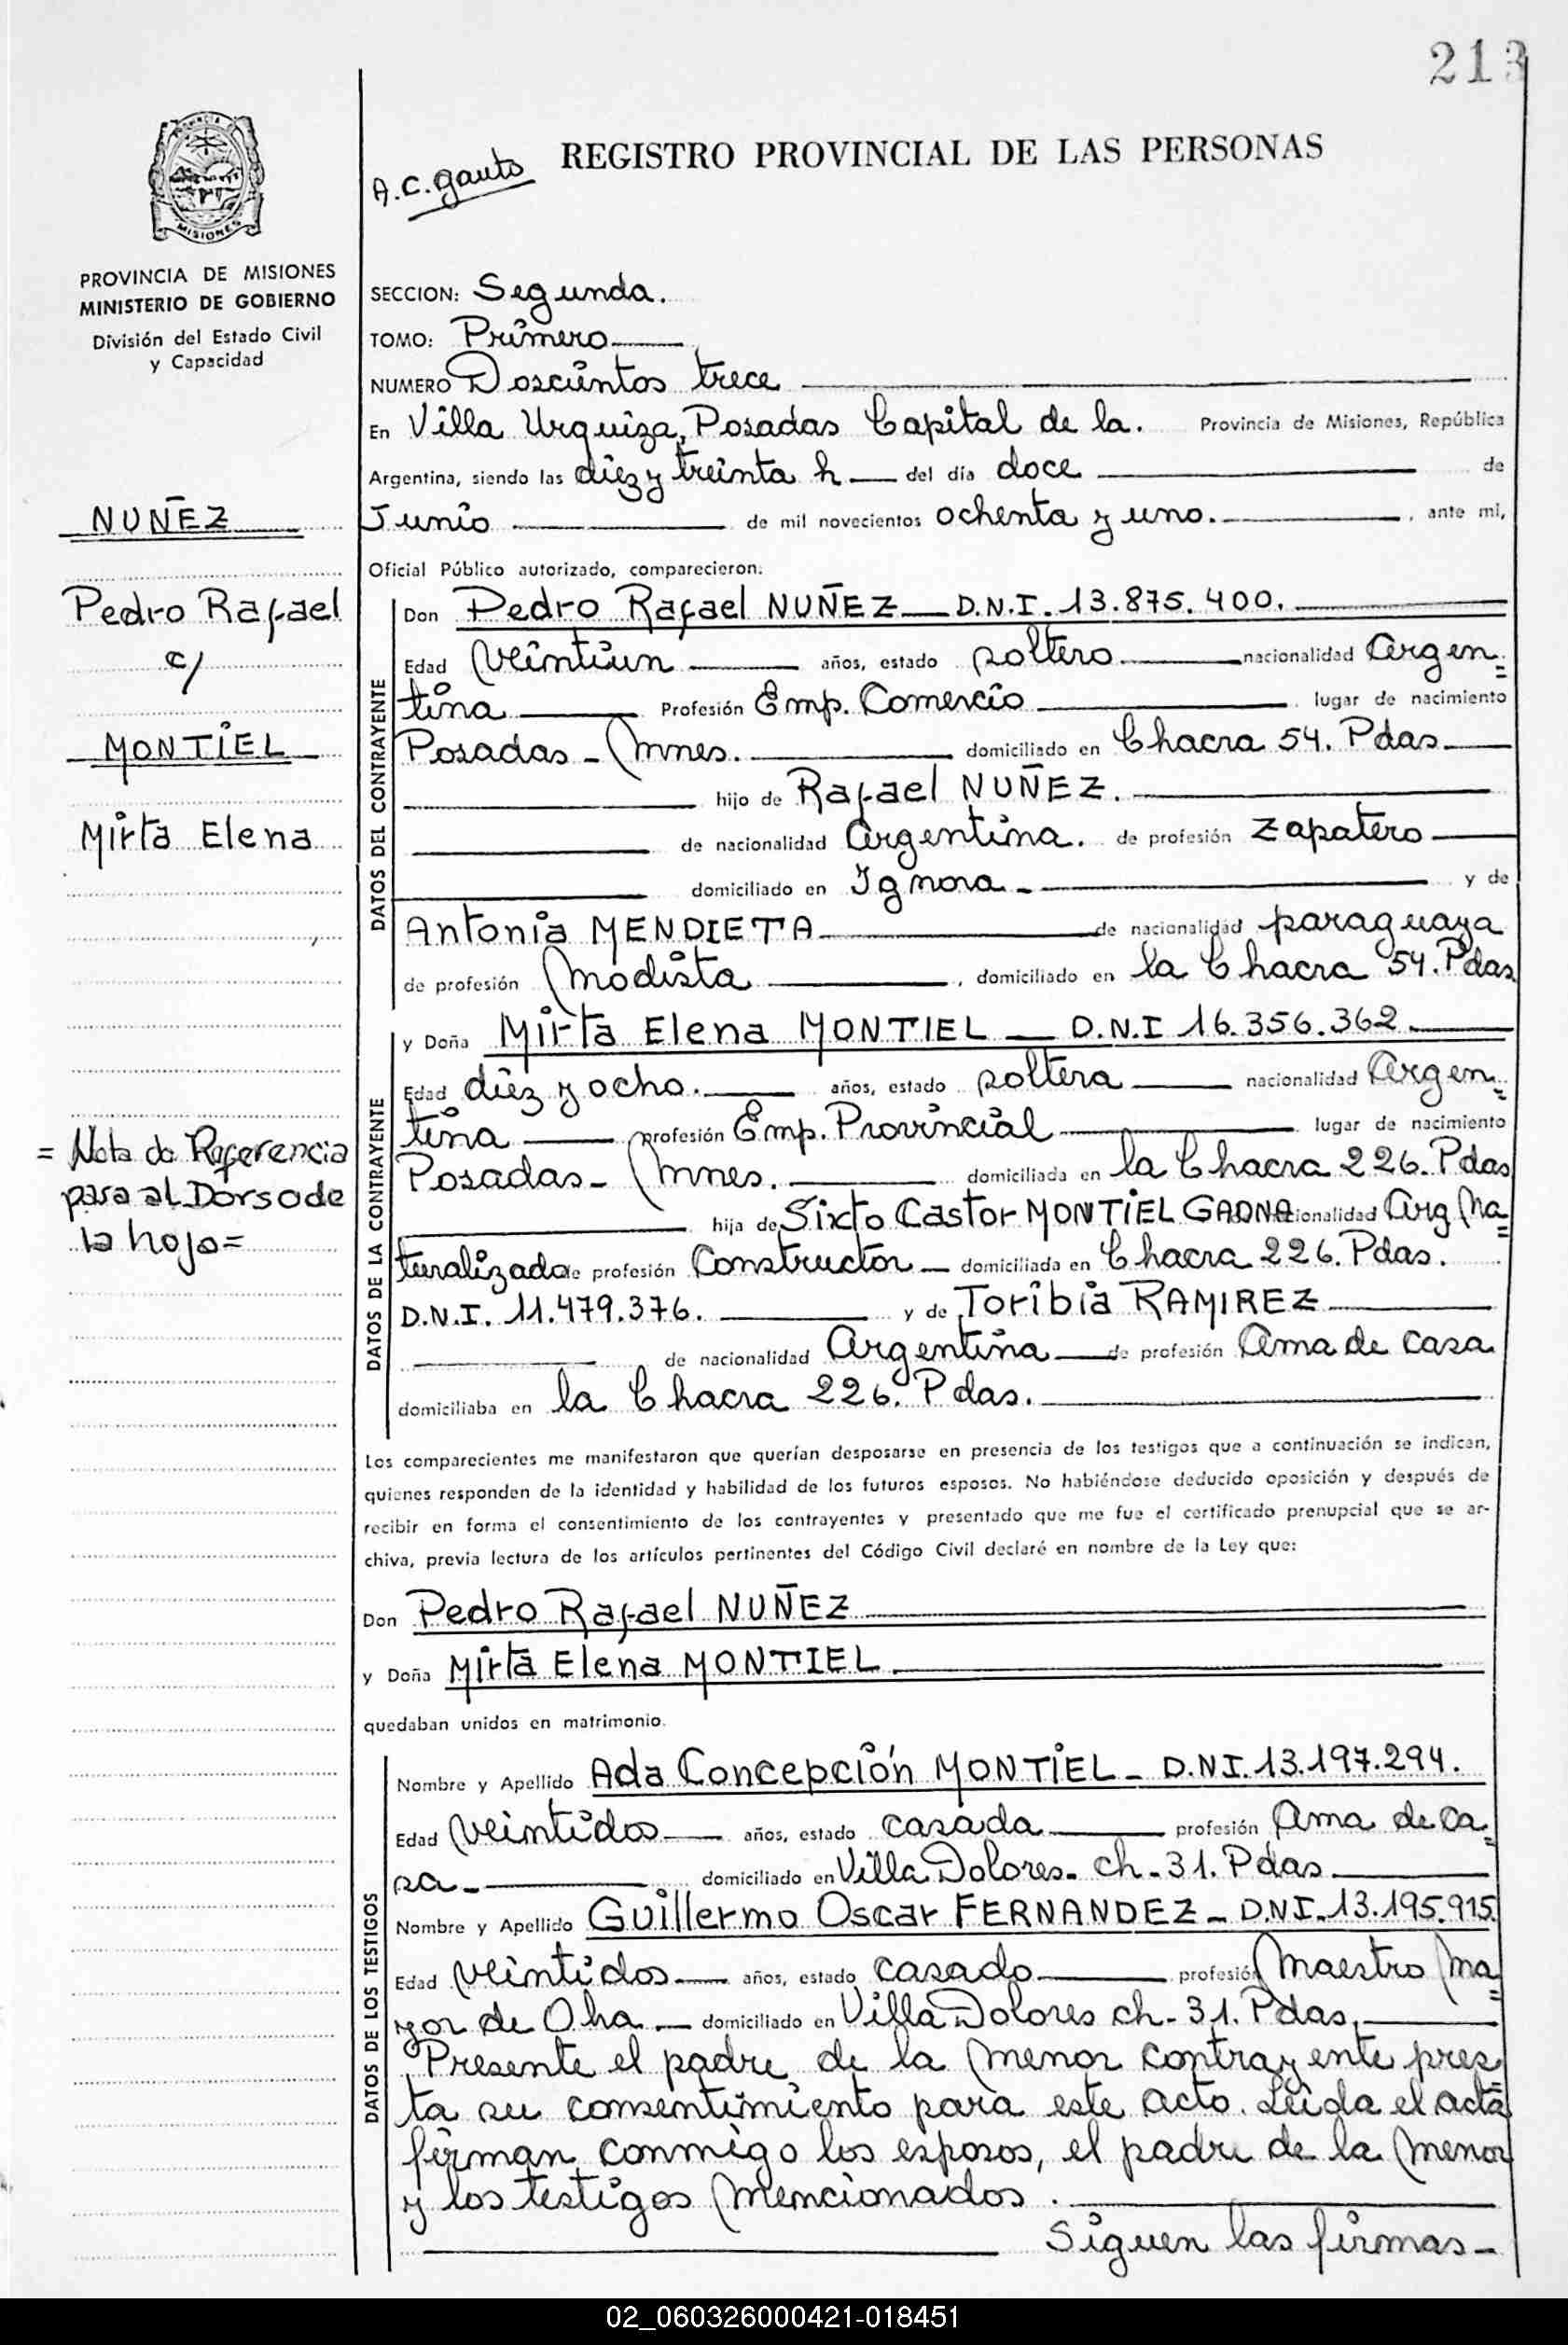 213
REGISTRO PROVINCIAL DE LAS PERSONAS
A.C. Gauto
PROVINCIA DE MISIONES
MINISTERIO DE GOBIERNO
División del Estado Civil
y Capacidad
NUÑEZ
Pedro Rafael
c/
MONTIEL
Mirta Elena
= Nota de Referencia
para al Dorso de
la hoja =
SECCION: Segunda.
TOMO: Primero
NUMERO Doscientos trece
En Villa Urquiza, Posadas Capital de la. Provincia de Misiones, República
Argentina, siendo las diez y treinta h del día doce de
Junio de mil novecientos ochenta y uno. , ante mi,
Oficial Público autorizado, comparecieron:
DATOS DEL CONTRAYENTE
Don Pedro Rafael NUÑEZ D.N.I. 13.875.400.
Edad Veintiun años, estado soltero nacionalidad Argen=
tina Profesión Emp. Comercio lugar de nacimiento
Posadas - Mnes. domiciliado en Chacra 54. Pdas
hijo de Rafael NUÑEZ.
de nacionalidad Argentina. de profesión Zapatero
domiciliado en Ignora - y de
Antonia MENDIETA de nacionalidad paraguaya
de profesión Modista , domiciliado en la Chacra 54. Pdas
DATOS DE LA CONTRAYENTE
y Doña Mirta Elena MONTIEL D.N.I 16.356.362
Edad diez y ocho. años, estado soltera nacionalidad Argen=
tina profesión Emp. Provincial lugar de nacimiento
Posadas - Mnes. domiciliada en la Chacra 226. Pdas
hija de Sixto Castor MONTIEL GAONA nacionalidad Arg Na=
turalizado de profesión Constructor domiciliada en Chacra 226. Pdas.
D.N.I. 11.479.376. y de Toribia RAMIREZ
de nacionalidad Argentina de profesión Ama de casa
domiciliaba en la Chacra 226. Pdas.
Los comparecientes me manifestaron que querían desposarse en presencia de los testigos que a continuación se indican,
quienes responden de la identidad y habilidad de los futuros esposos. No habiéndose deducido oposición y después de
recibir en forma el consentimiento de los contrayentes y presentado que me fue el certificado prenupcial que se ar-
chiva, previa lectura de los artículos pertinentes del Código Civil declaré en nombre de la Ley que:
Don Pedro Rafael NUÑEZ
y Doña Mirta Elena MONTIEL
quedaban unidos en matrimonio.
DATOS DE LOS TESTIGOS
Nombre y Apellido Ada Concepción MONTIEL - D.N.I. 13.197.294.
Edad Veintidos años, estado casada profesión Ama de ca=
sa - domiciliado en Villa Dolores - ch - 31. Pdas
Nombre y Apellido Guillermo Oscar FERNANDEZ - D.N.I. 13.195.915.
Edad Veintidos años, estado casado profesión Maestro Ma=
yor de Oba domiciliado en Villa Dolores ch - 31. Pdas.
Presente el padre de la menor contrayente pres=
ta su consentimiento para este acto. Leida el acta
firman conmigo los esposos, el padre de la menor
y los testigos mencionados.
Siguen las firmas -
02_060326000421-018451